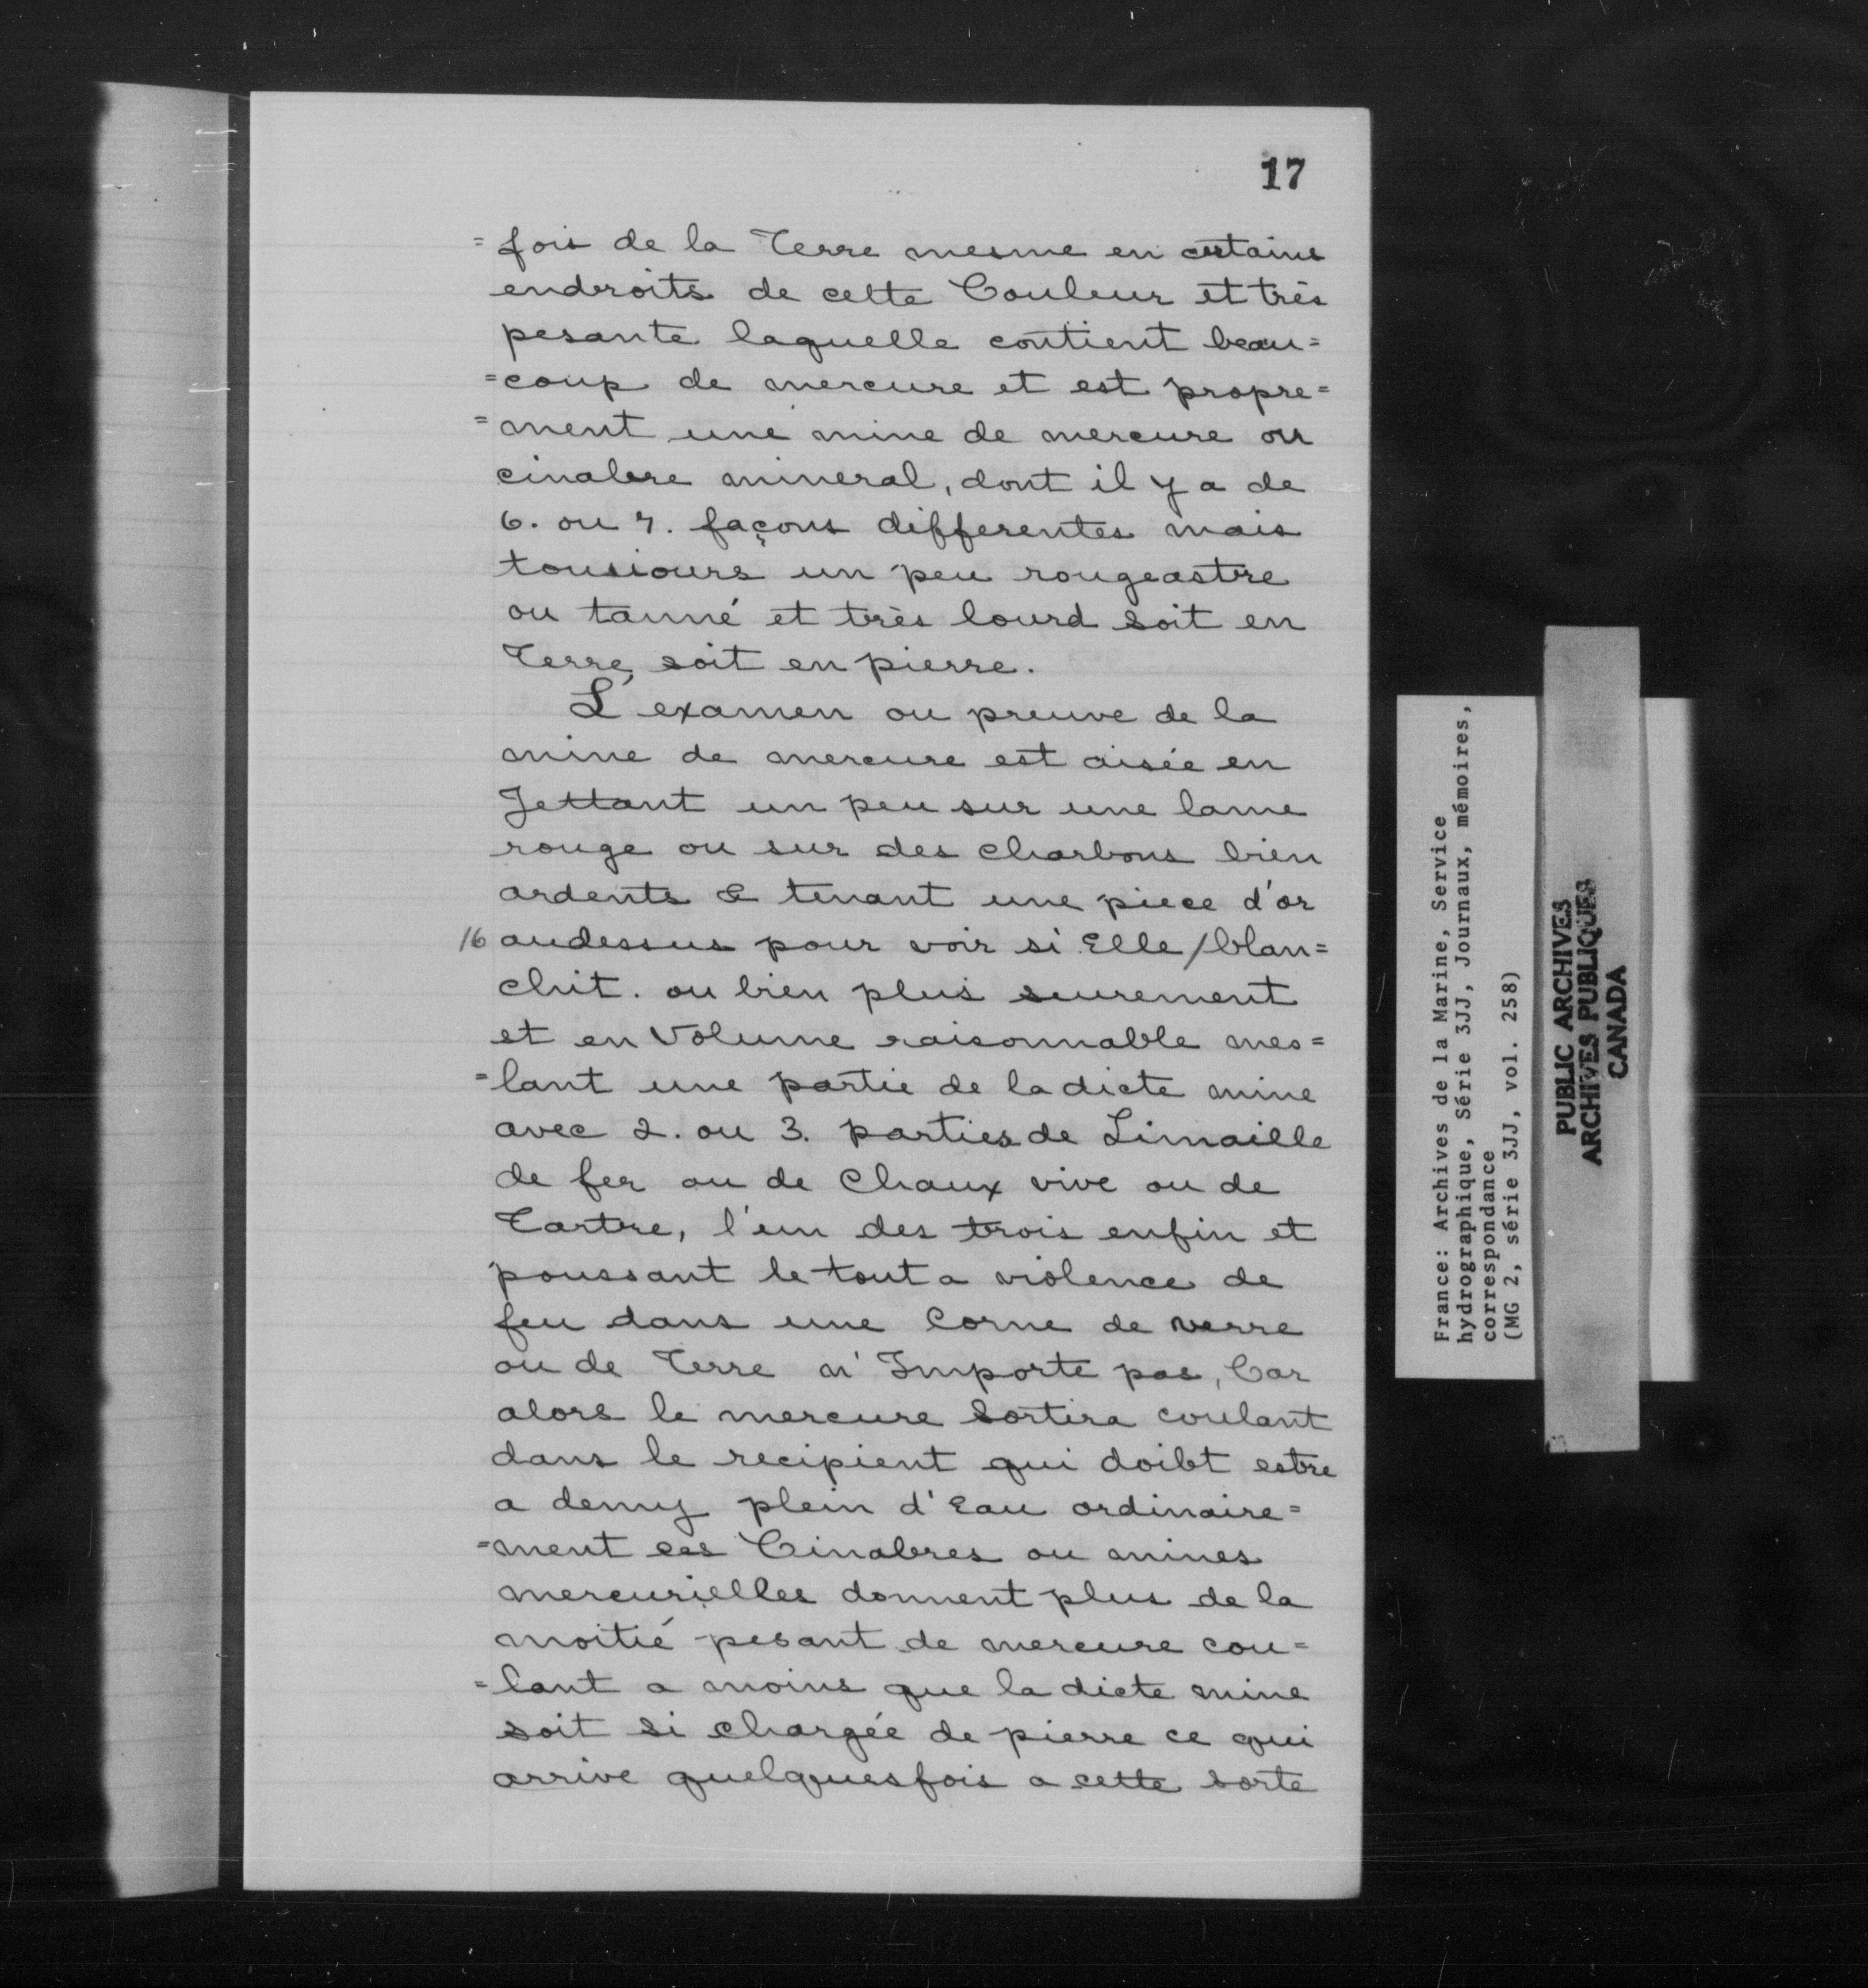 17
=fois de la Terre mesme en certains
endroits de cette Couleur et très
pesante laquelle contient beau=
=coup de mercure et est propre=
=ment une mine de mercure ou
cinabre mineral, dont il y a de
6. ou 7. façons differentes mais
tousiours un peu rougeastre
ou tanné et très lourd soit en
Terre, soit en pierre.
L'examen ou preuve de la
mine de mercure est aisée en
Jettant un peu sur une lame
rouge ou sur des charbons bien
ardents & tenant une piece d'or
16 audessus pour voir si Elle /blan=
chit. ou bien plus seurement
et en Volume raisonnable mes=
=lant une partie de ladicte mine
avec 2. ou 3. parties de Limaille
de fer ou de Chaux vive ou de
Tartre, l'un des trois enfin et
poussant le tout a violence de
feu dans une Corne de verre
ou de Terre n'Importe pas, Car
alors le mercure sortira coulant
dans le recipient qui doibt estre
a demy plein d'Eau ordinaire=
=ment ces Cinabres ou mines
mercurielles donnent plus de la
moitié pesant de mercure cou=
=lant a moins que ladicte mine
soit si chargée de pierre ce qui
arrive quelquesfois a cette sorte
France: Archives de la Marine, Service
hydrographique, Série 3JJ, Journaux, mémoires,
correspondance
(MG 2, série 3JJ, vol. 258)
PUBLIC ARCHIVES
ARCHIVES PUBLIQUES
CANADA